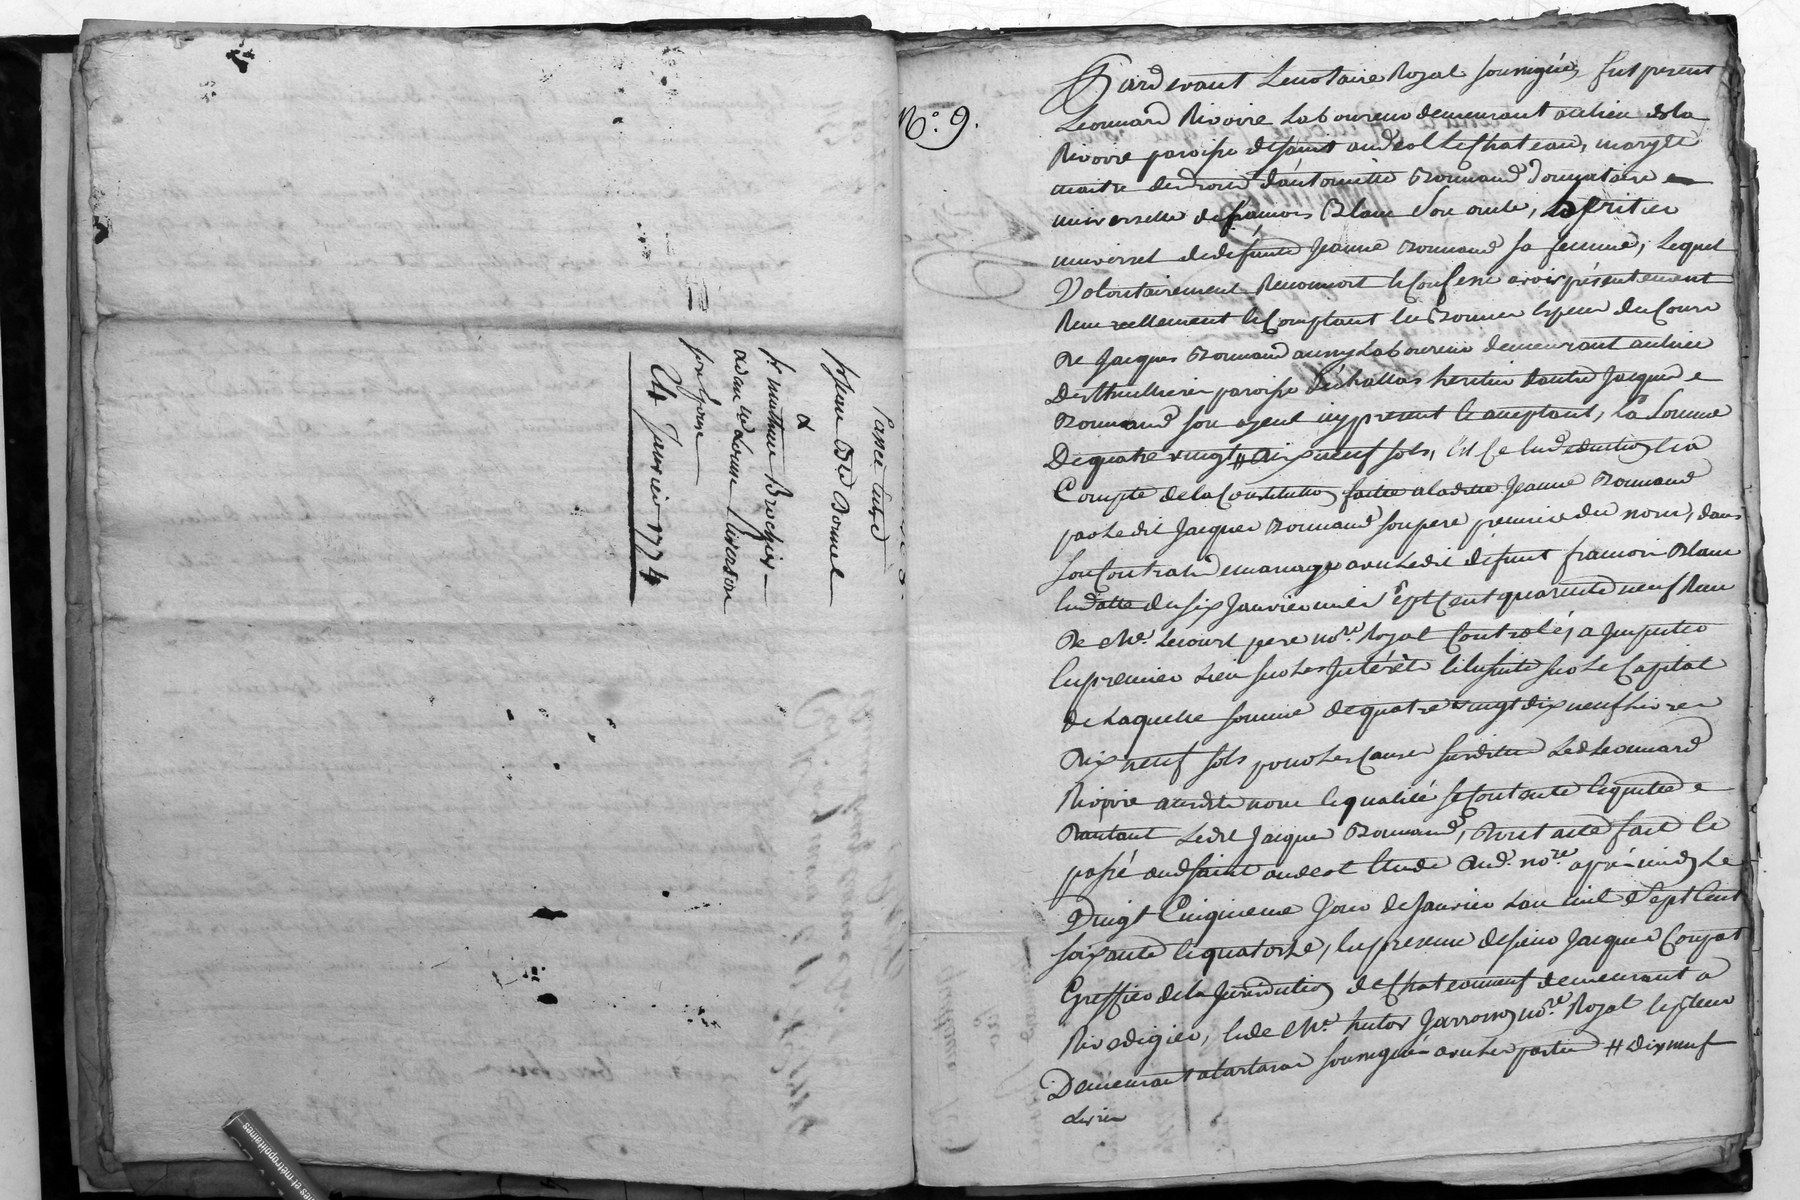 Passé cure
sr Jean Bte Bonnel
a
sr mathieu Brochier
24 Janvier 1774
No. 9.
Pardevant Lenotaire Royal soussigné, fut present
Leonnard Rivoire Laboureur demeurant aulieu de la
Rivoire paroisse de saint andeol le Chateau, mary &
maitre des droits d'antoinette Bonnand Donnataire
universelle de francois Blanc son oncle, heritier
universel de defunte Jeanne Bonnand sa femme, Lequel
Volontairement Reconnoit & Confesse avoir présentement
Reçu reellement & Comptant en Bonnes Especes du Cours
De Jacques Bonnand aussy Laboureur demeurant aulieu
paroisse d'échallas heritier d'autre Jacques
Bonnand son ayeul icy present & acceptant, La Somme
De quatre vingt # Dix neuf sols, Et Ce En deduction & a
Compte de la Constitution faitte a laditte Jeanne Bonnand
par Ledit Jacques Bonnand son pere premier du nom, dans
son Contrat de mariage avec Ledit défunt francois Blanc
En datte du six Janvier mil sept Cent quarente neuf Reçu
De Me. Lecourt pere nore. Royal Controlé, a Imputer
En premier Lieu sur Les Interêts & Ensuite sur Le Capital
de Laquelle somme de quatre vingt dix neuf Livres
Dix neuf sols pour Les Causes susdittes Led Leonnard
Rivoire auxdits nom & qualité se Contente & quitte
Ledit Jacques Bonnand, Dont acte fait &
passé aud saint andeol Etude Dud. nore. après midy Le
Vingt Cinquieme Jour de Janvier L'an mil sept Cent
soixante & quatorze, En presence de sieur Jacques Coupat
Greffier de la Jurisdiction de Chateauneuf demeurant a
Rivedigier, & de Me. hector Jarrosson nore. Royal
Demeurant a tartaras soussignés avec Les parties # Dix neuf
Livres
métropolitaines